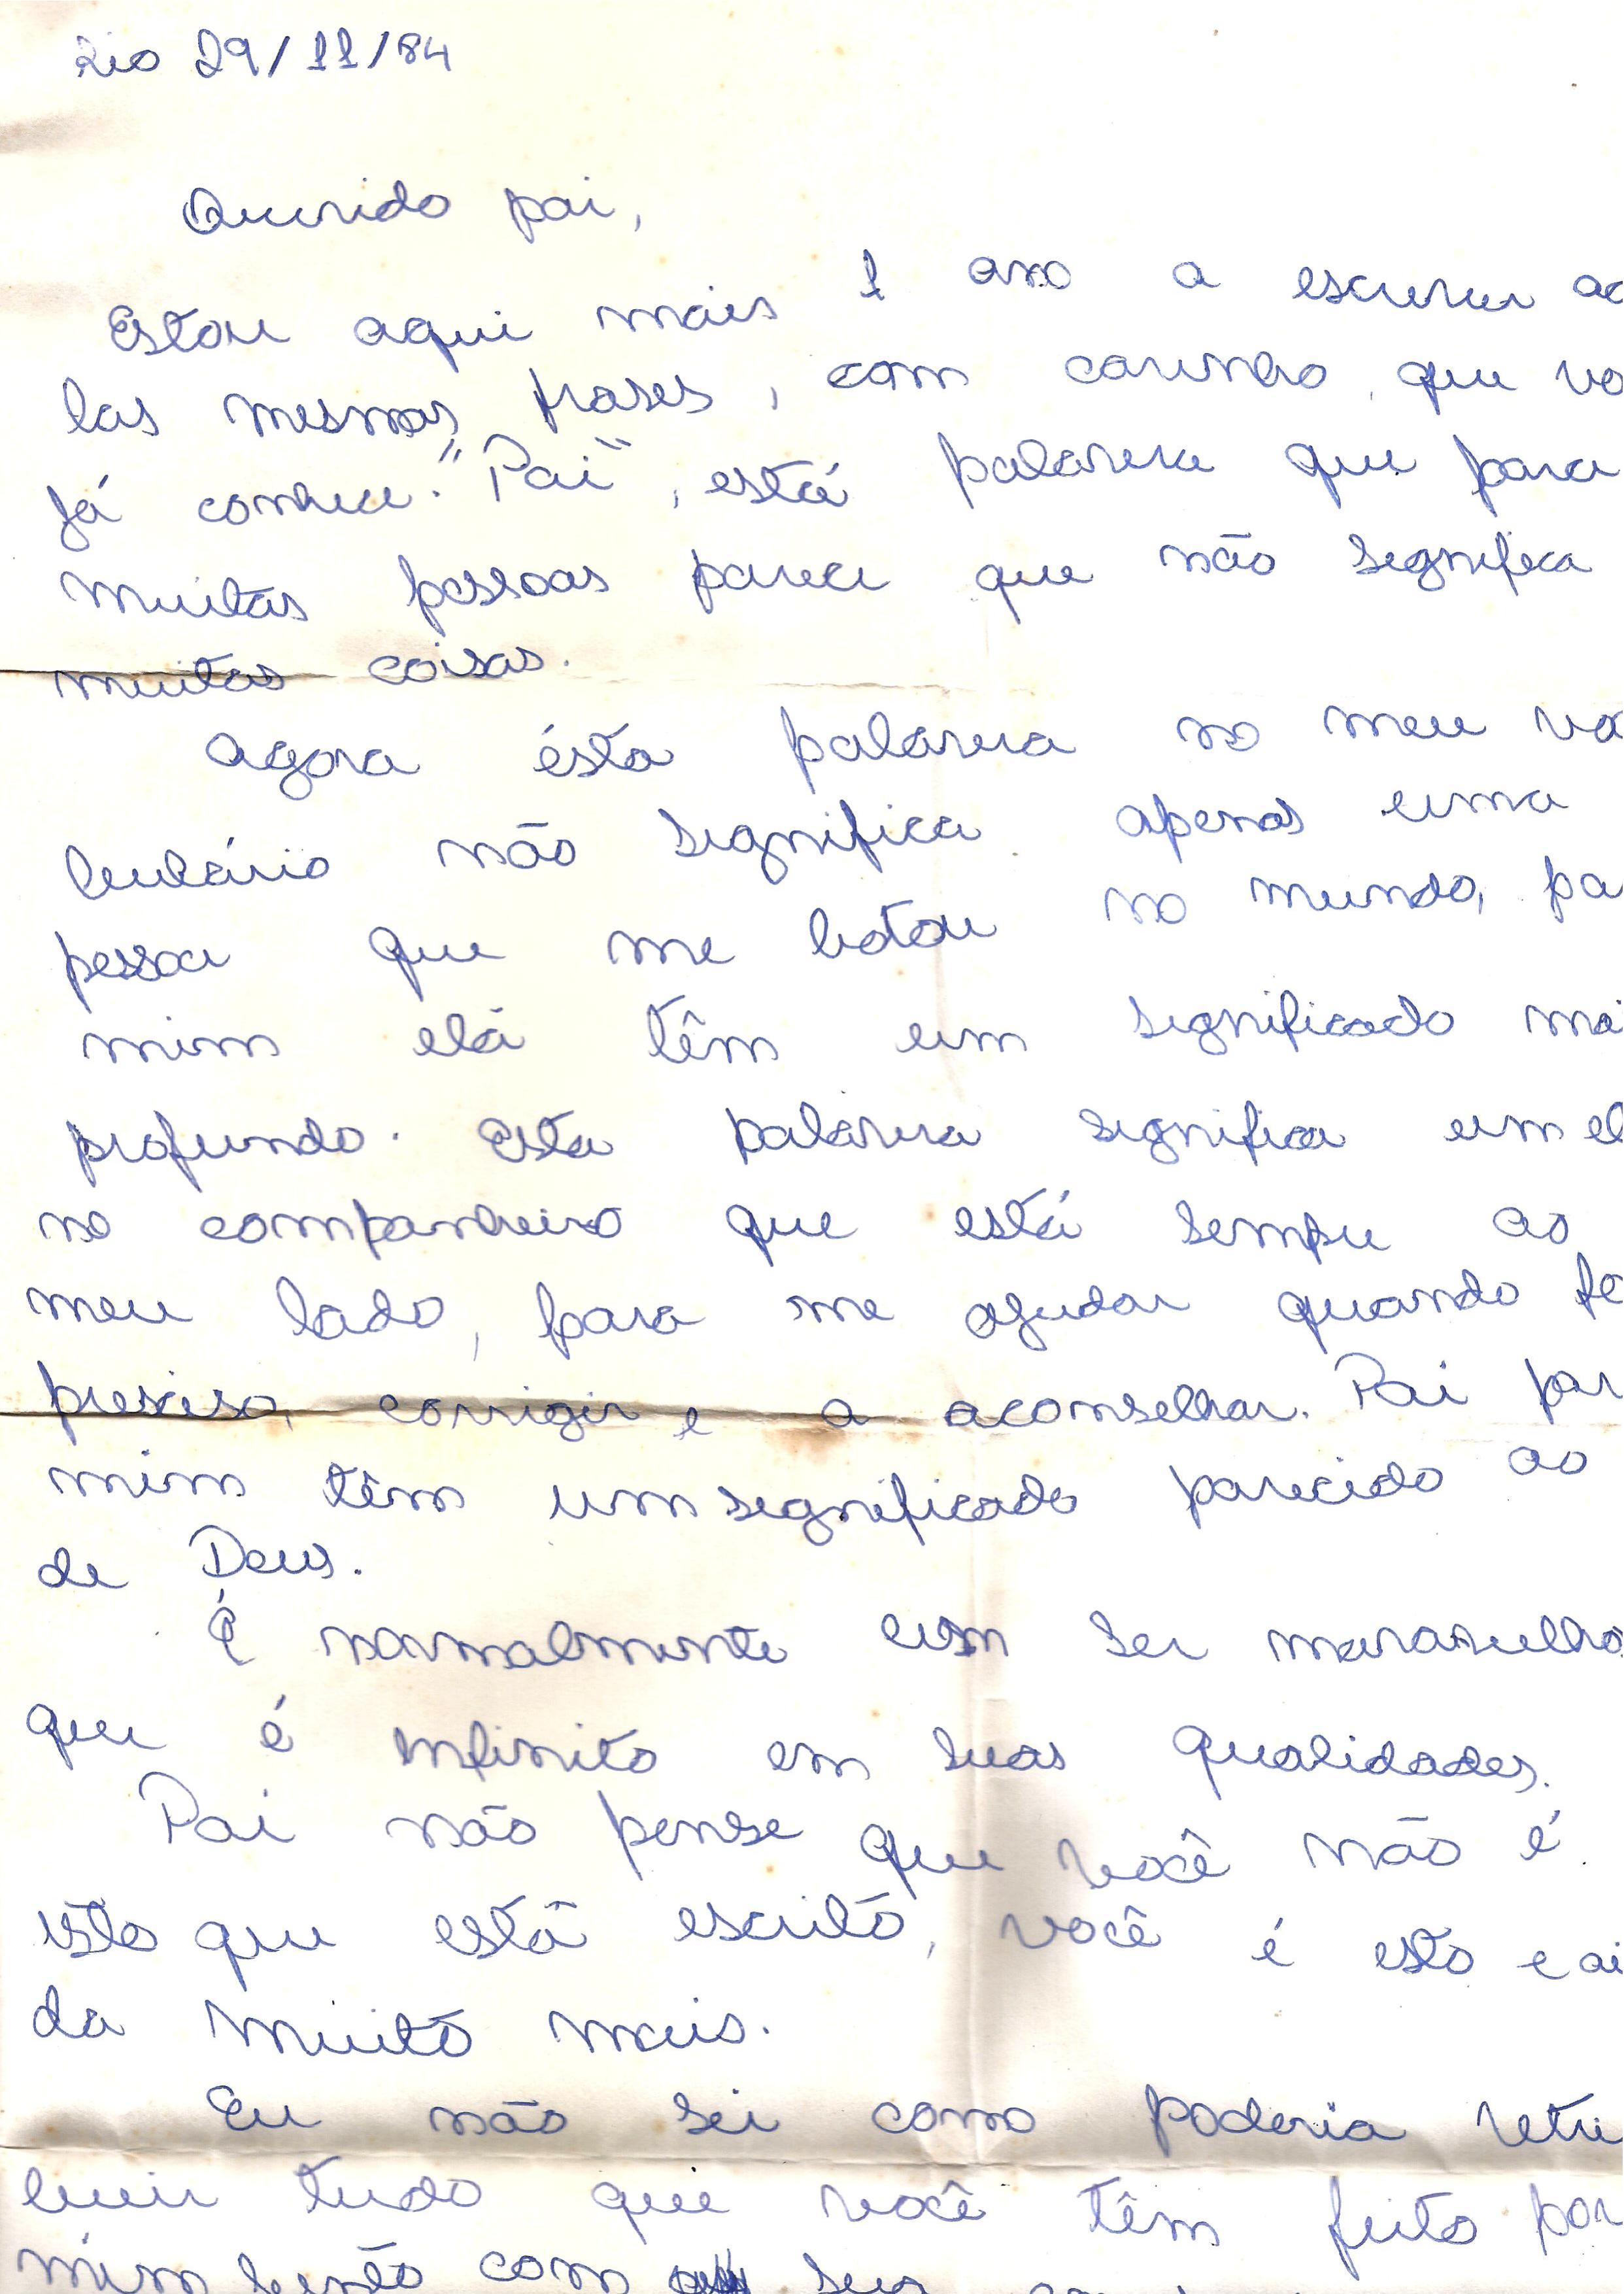 Rio 29/11/84
Querido pai,
Estou aqui mais 1 ano a escrever aq
las mesmas frases, com carinho, que vo
já conhece. "Pai", está palavra que para
muitas pessoas parece que não significa
muitas coisas.
Agora ésta palavra no meu vo
bulário não significa apenas uma
pessoa que me botou no mundo, pa
mim ela têm um significado mai
profundo. Esta palavra significa um et
no companheiro que está sempre ao
meu lado, para me ajudar quando fo
preciso, corrigir e a aconselhar. Pai par
mim têm um significado parecido ao
de Deus.
É normalmente um ser maravilhos
que é infinito em suas qualidades.
Pai não pense que você não é
isto que está escrito, você é isto e ai
da muito mais.
Eu não sei como poderia retri
buir tudo que você têm feito por
mim senão com seus